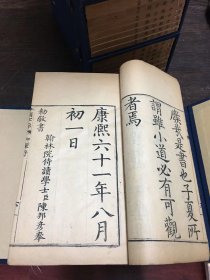 廢者是書也子夏所
謂雖小道必有可觀
者焉
康熙六十一年八月
初一日
翰林院侍讀學士臣陳邦彥奉
勅敬書